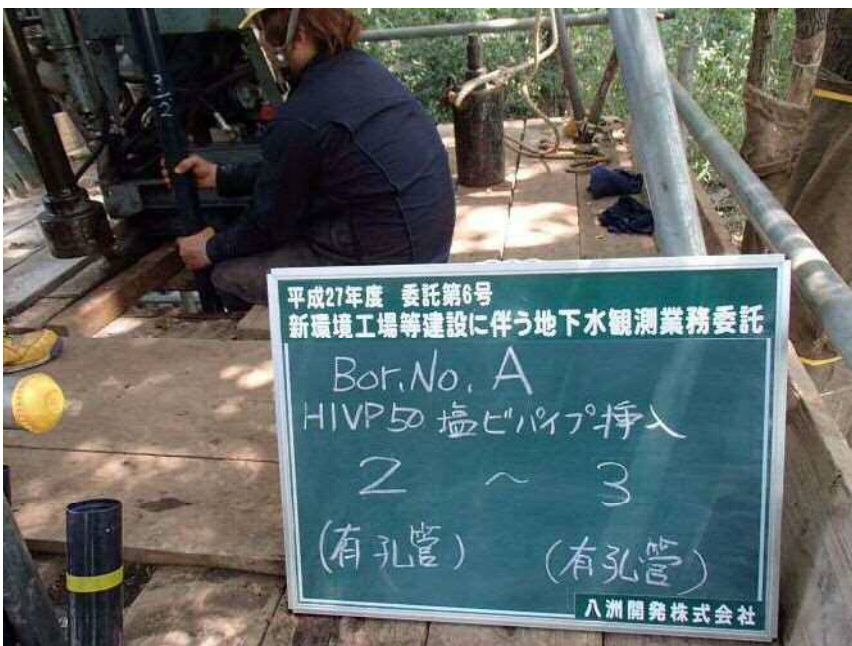 平成27年度 委託第6号
新環境工場等建設に伴う地下水観測業務委託
Bor.No. A
HIVP50 塩ビパイプ挿入
2 ～ 3
(有孔管) (有孔管)
八洲開発株式会社